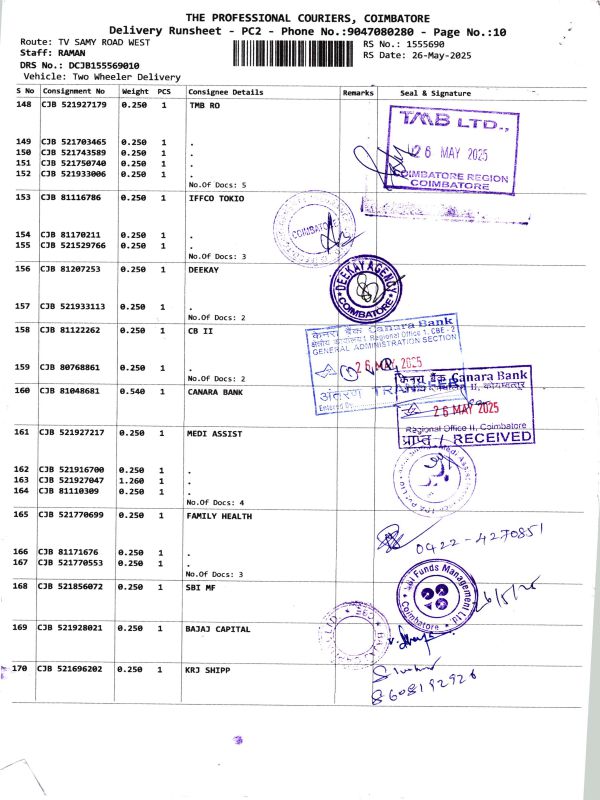 THE PROFESSIONAL COURIERS, COIMBATORE
Delivery Runsheet - PC2 - Phone No.:9047080280 - Page No.:10
Route: TV SAMY ROAD WEST
RS No.: 1555690
Staff: RAMAN
RS Date: 26-May-2025
DRS No.: DCJB155569010
Vehicle: Two Wheeler Delivery
S No Consignment No Weight PCS Consignee Details Remarks Seal & Signature
148 CJB 521927179 0.250 1 TMB RO
TMB LTD.,
149 CJB 521703465 0.250 1 .
150 CJB 521743589 0.250 1 .
26 MAY 2025
151 CJB 521750740 0.250 1 .
152 CJB 521933006 0.250 1 .
COIMBATORE REGION
No.Of Docs: 5
COIMBATORE
153 CJB 81116786 0.250 1 IFFCO TOKIO
COIMBATORE
154 CJB 81170211 0.250 1 .
155 CJB 521529766 0.250 1 .
No.Of Docs: 3
156 CJB 81207253 0.250 1 DEEKAY
DEEKAY AGENCY
COIMBATORE
157 CJB 521933113 0.250 1 .
No.Of Docs: 2
158 CJB 81122262 0.250 1 CB II
केनरा बैंक Canara Bank
Regional Office 1, CBE - 2
GENERAL ADMINISTRATION SECTION
159 CJB 80768861 0.250 1 .
26 MAY 2025
No.Of Docs: 2
अंतरण
Entered By
160 CJB 81048681 0.540 1 CANARA BANK
केनरा बैंक Canara Bank
26 MAY 2025
Regional Office II, Coimbatore
प्राप्त / RECEIVED
161 CJB 521927217 0.250 1 MEDI ASSIST
162 CJB 521916700 0.250 1 .
163 CJB 521927047 1.260 1 .
164 CJB 81110309 0.250 1 .
No.Of Docs: 4
165 CJB 521770699 0.250 1 FAMILY HEALTH
0422-4270851
166 CJB 81171676 0.250 1 .
167 CJB 521770553 0.250 1 .
No.Of Docs: 3
168 CJB 521856072 0.250 1 SBI MF
SBI Funds Management
Coimbatore
26/5/25
169 CJB 521928021 0.250 1 BAJAJ CAPITAL
170 CJB 521696202 0.250 1 KRJ SHIPP
8608192926